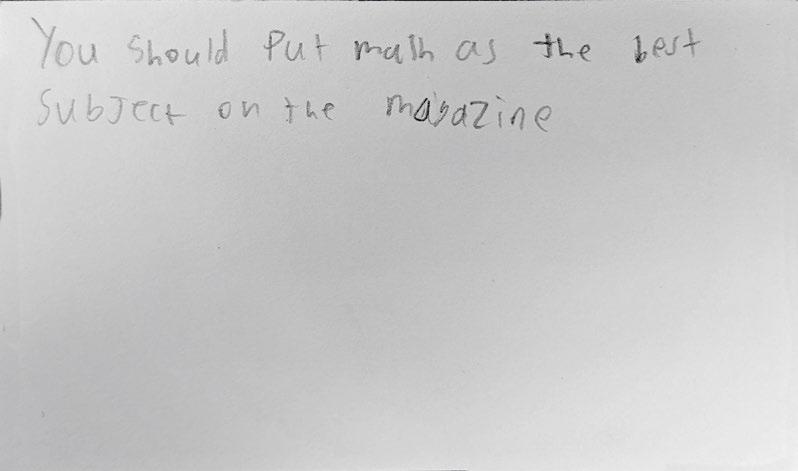 You should Put math as the best
Subject on the magazine